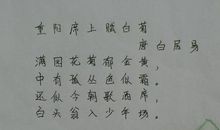 重阳席上赋白菊
唐白居易
满园花菊郁金黄，
中有孤丛色似霜。
还似今朝歌酒席，
白头翁入少年场。